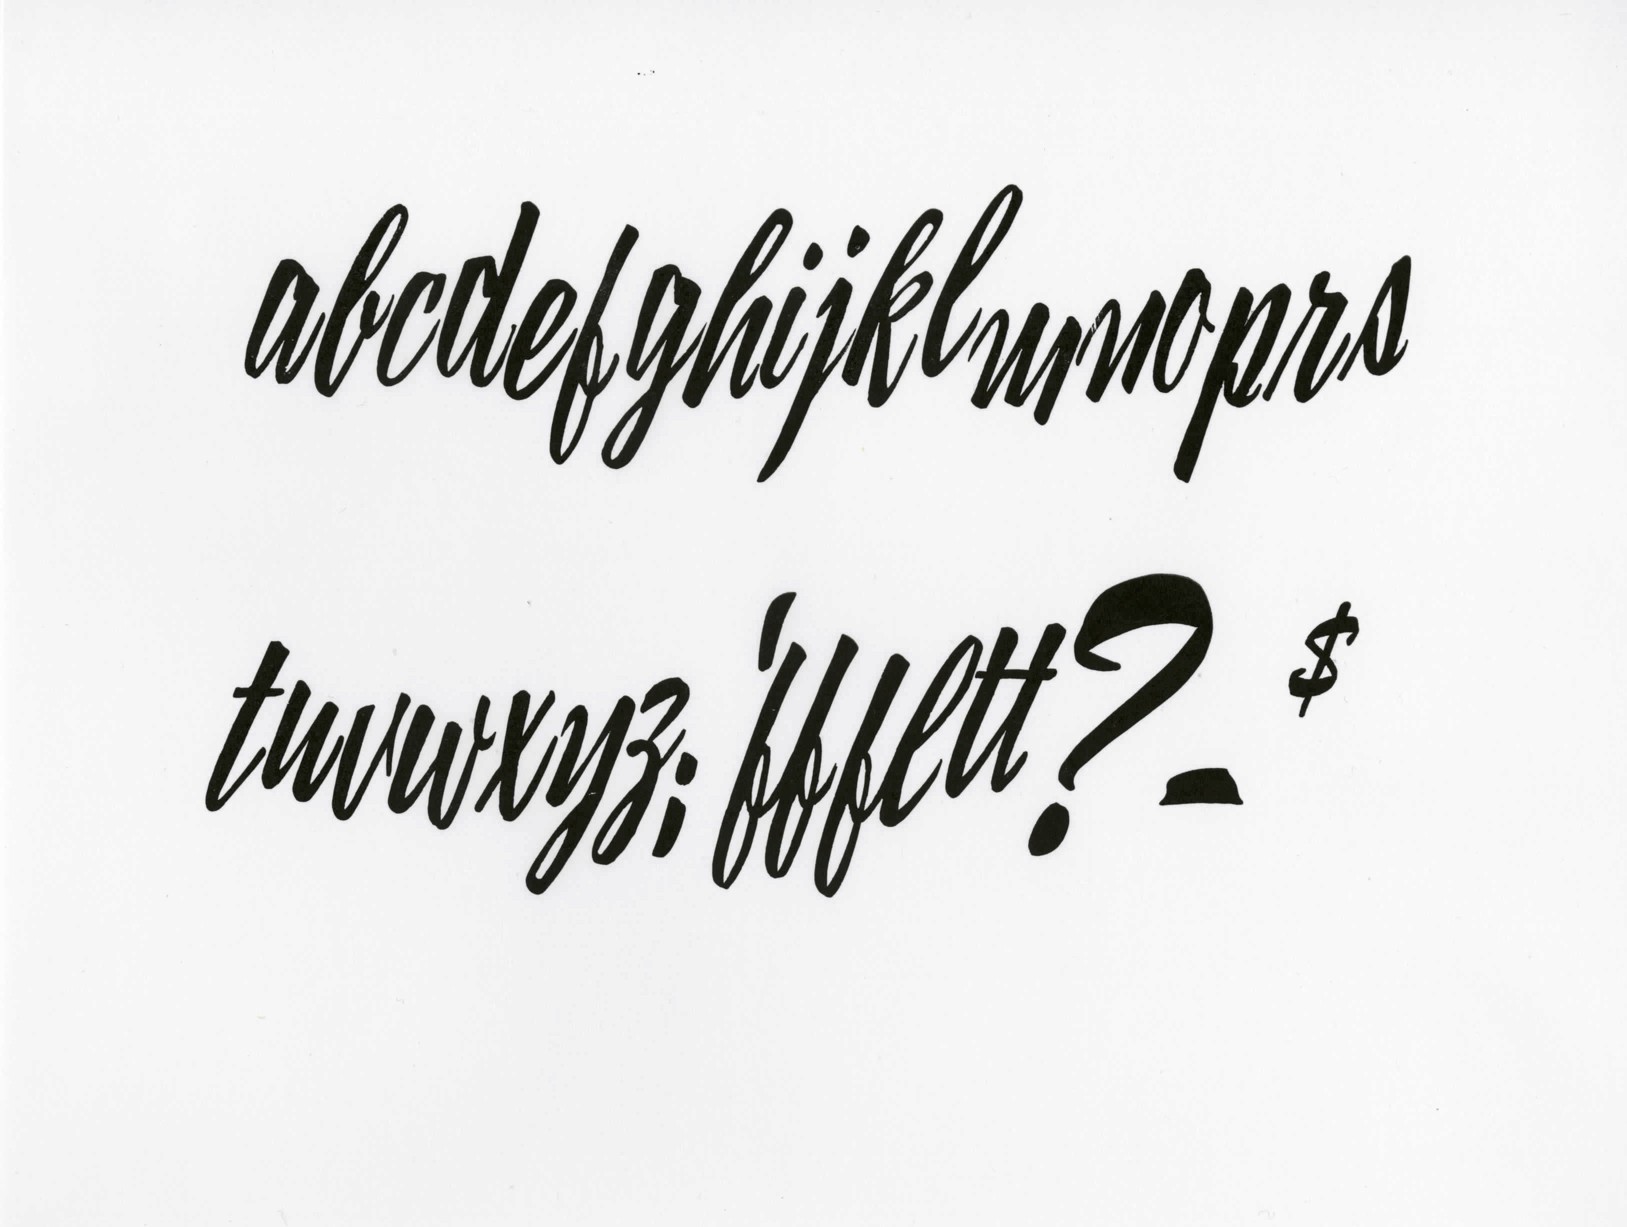 abcdefghijklmnoprs
tuvwxyz; 'fffltt? - $